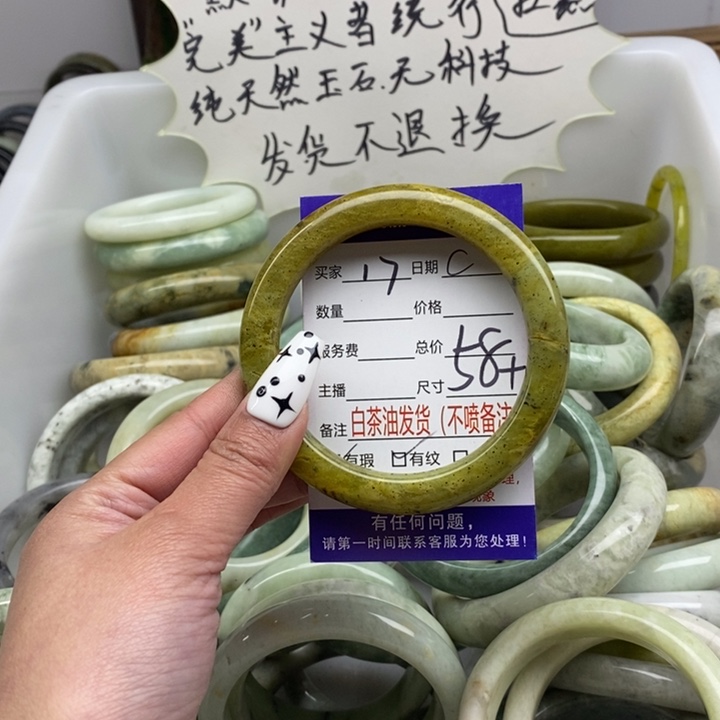 "完美"主义者绕行
纯天然玉石.无科技
发货不退换
买家 17 日期 C
数量 价格
服务费 总价
主播 尺寸 58+
备注 白茶油发货（不喷备注
有瑕 有纹
理，
现象
有任何问题，
请第一时间联系客服为您处理！